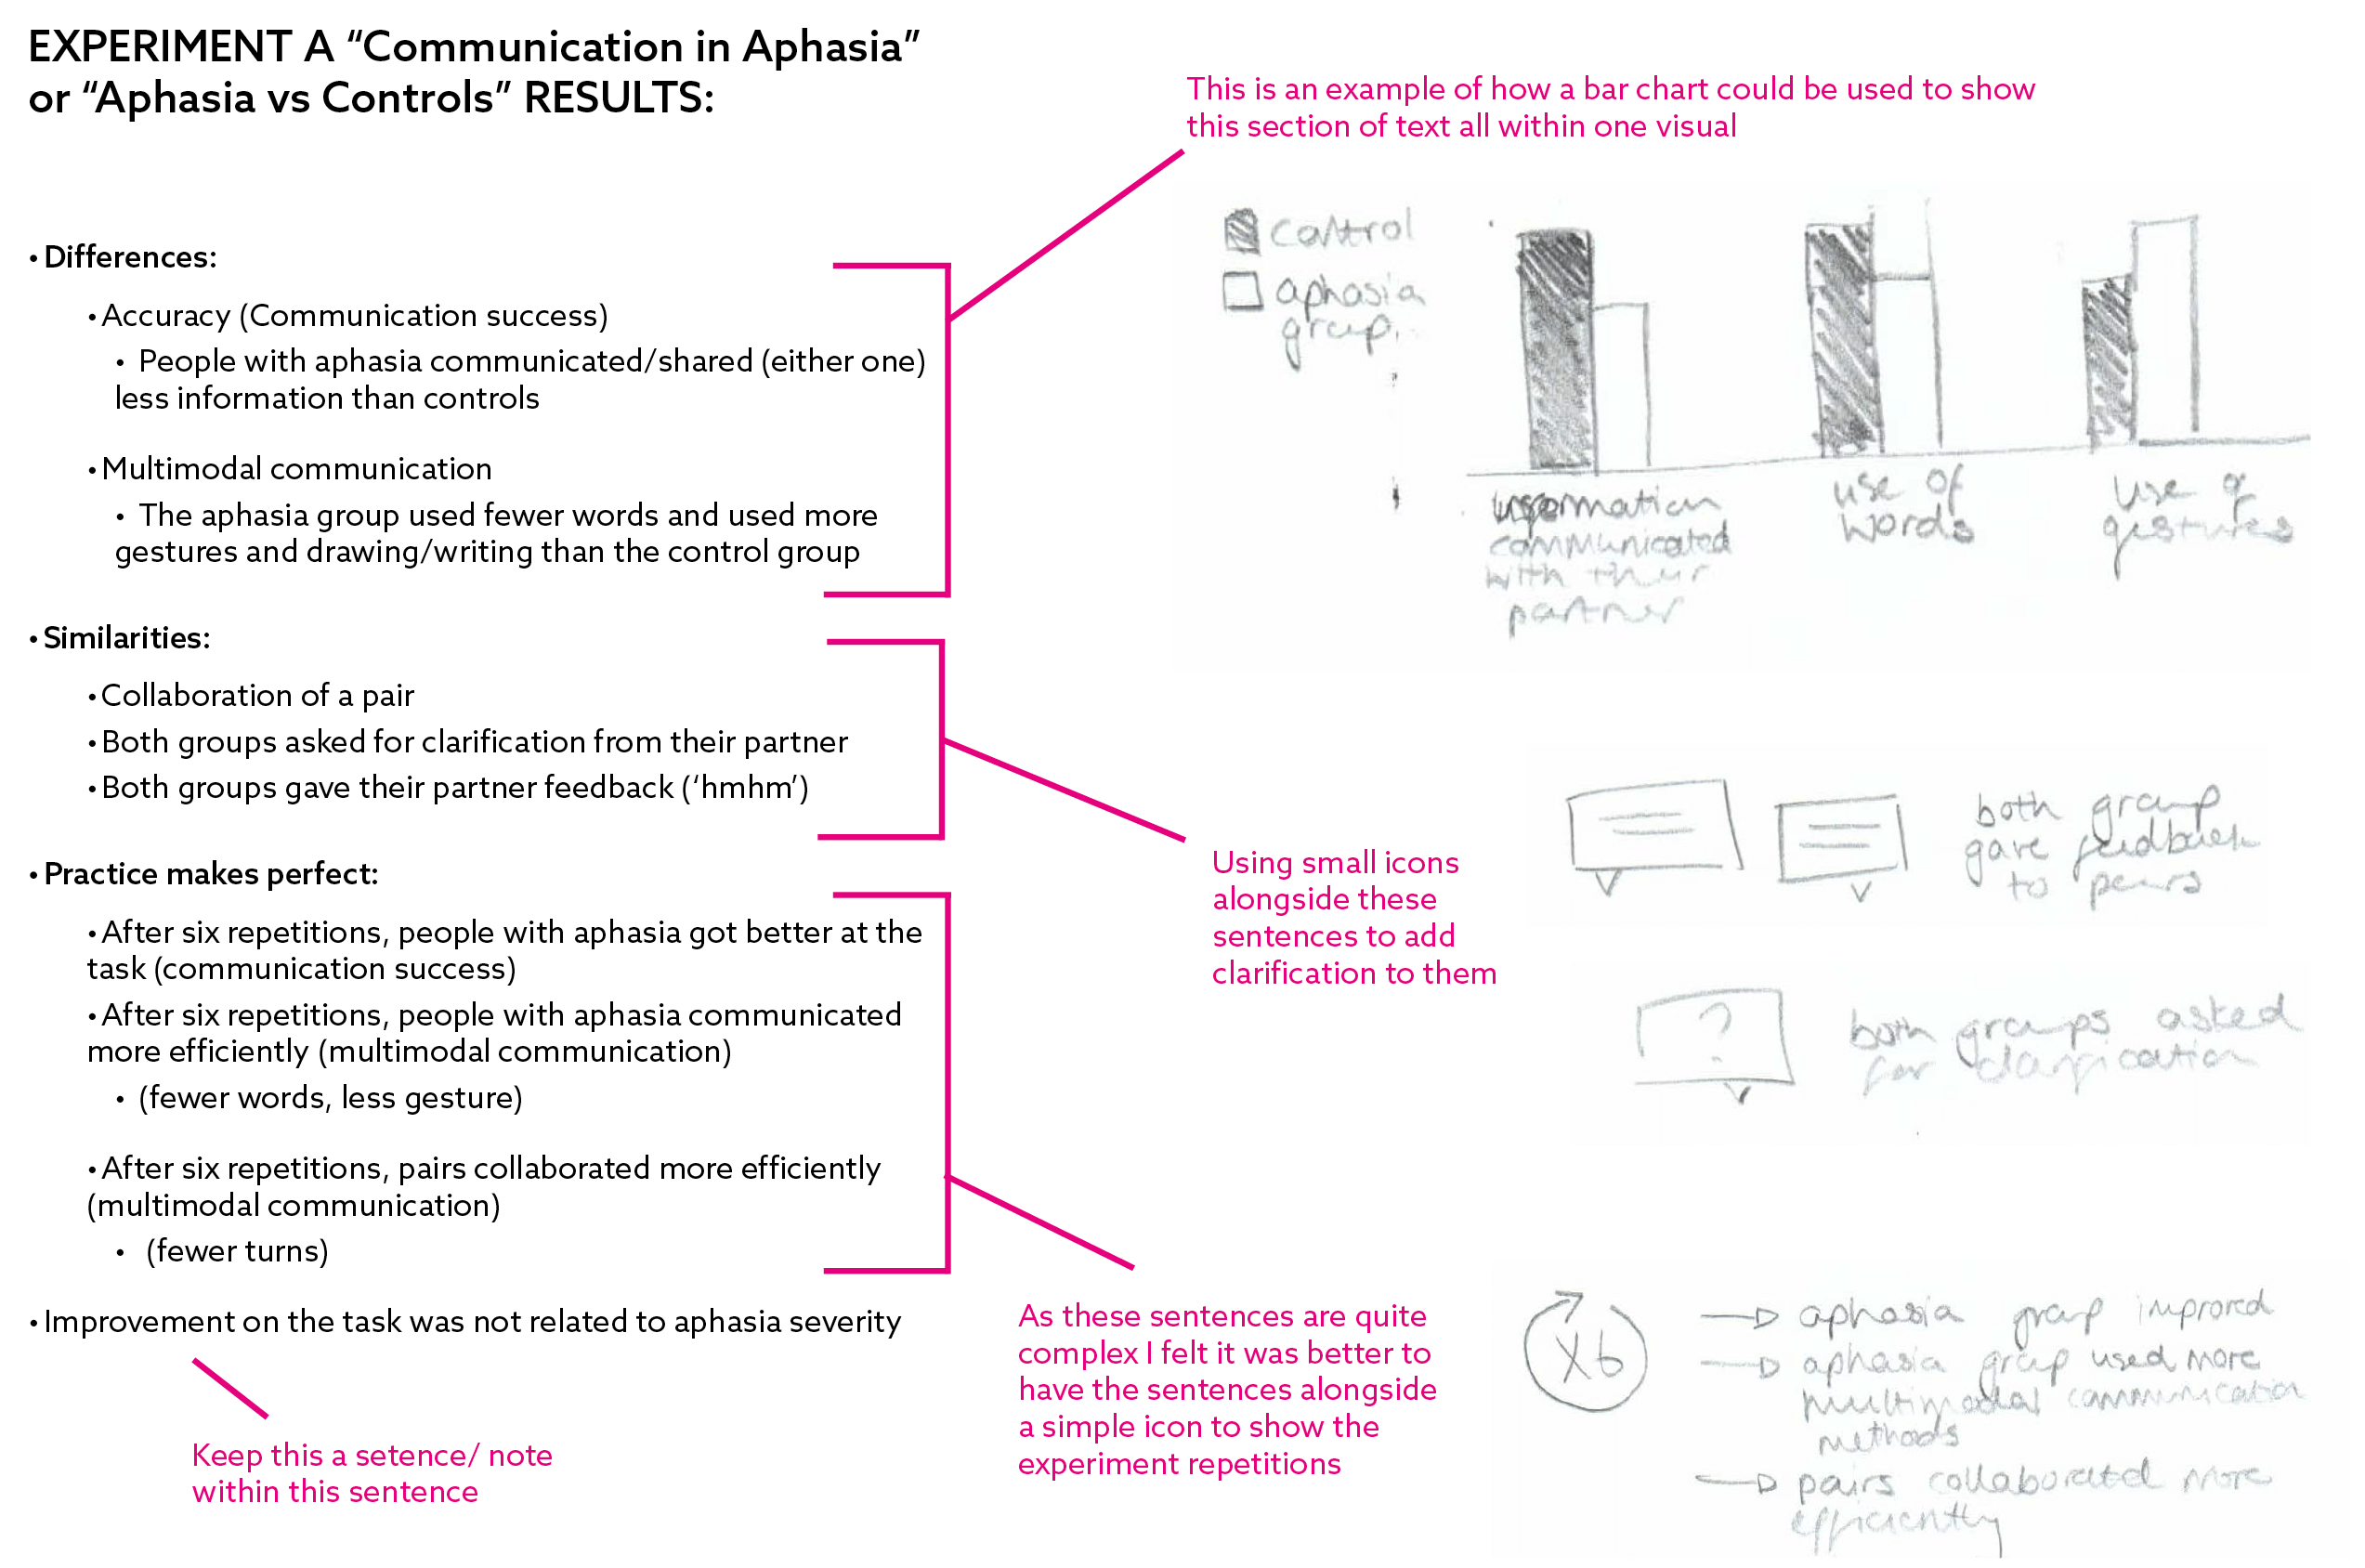 EXPERIMENT A “Communication in Aphasia”
or “Aphasia vs Controls” RESULTS:
• Differences:
• Accuracy (Communication success)
• People with aphasia communicated/shared (either one)
less information than controls
• Multimodal communication
• The aphasia group used fewer words and used more
gestures and drawing/writing than the control group
• Similarities:
• Collaboration of a pair
• Both groups asked for clarification from their partner
• Both groups gave their partner feedback (‘hmhm’)
• Practice makes perfect:
• After six repetitions, people with aphasia got better at the
task (communication success)
• After six repetitions, people with aphasia communicated
more efficiently (multimodal communication)
• (fewer words, less gesture)
• After six repetitions, pairs collaborated more efficiently
(multimodal communication)
• (fewer turns)
• Improvement on the task was not related to aphasia severity
Keep this a setence/ note
within this sentence
This is an example of how a bar chart could be used to show
this section of text all within one visual
control
aphasia
group
information
communicated
with their
partner
use of
words
use of
gestures
Using small icons
alongside these
sentences to add
clarification to them
both group
gave feedback
to peers
?
both groups asked
for clarification
As these sentences are quite
complex I felt it was better to
have the sentences alongside
a simple icon to show the
experiment repetitions
x6
aphasia group improved
aphasia group used more
multimodal communication
methods
pairs collaborated more
efficiently